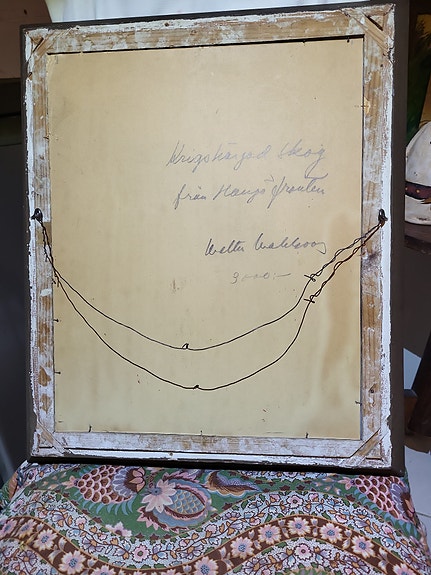 Krigshärjad skog
från Hangö fronten
Walter Wahlroos
3000:-